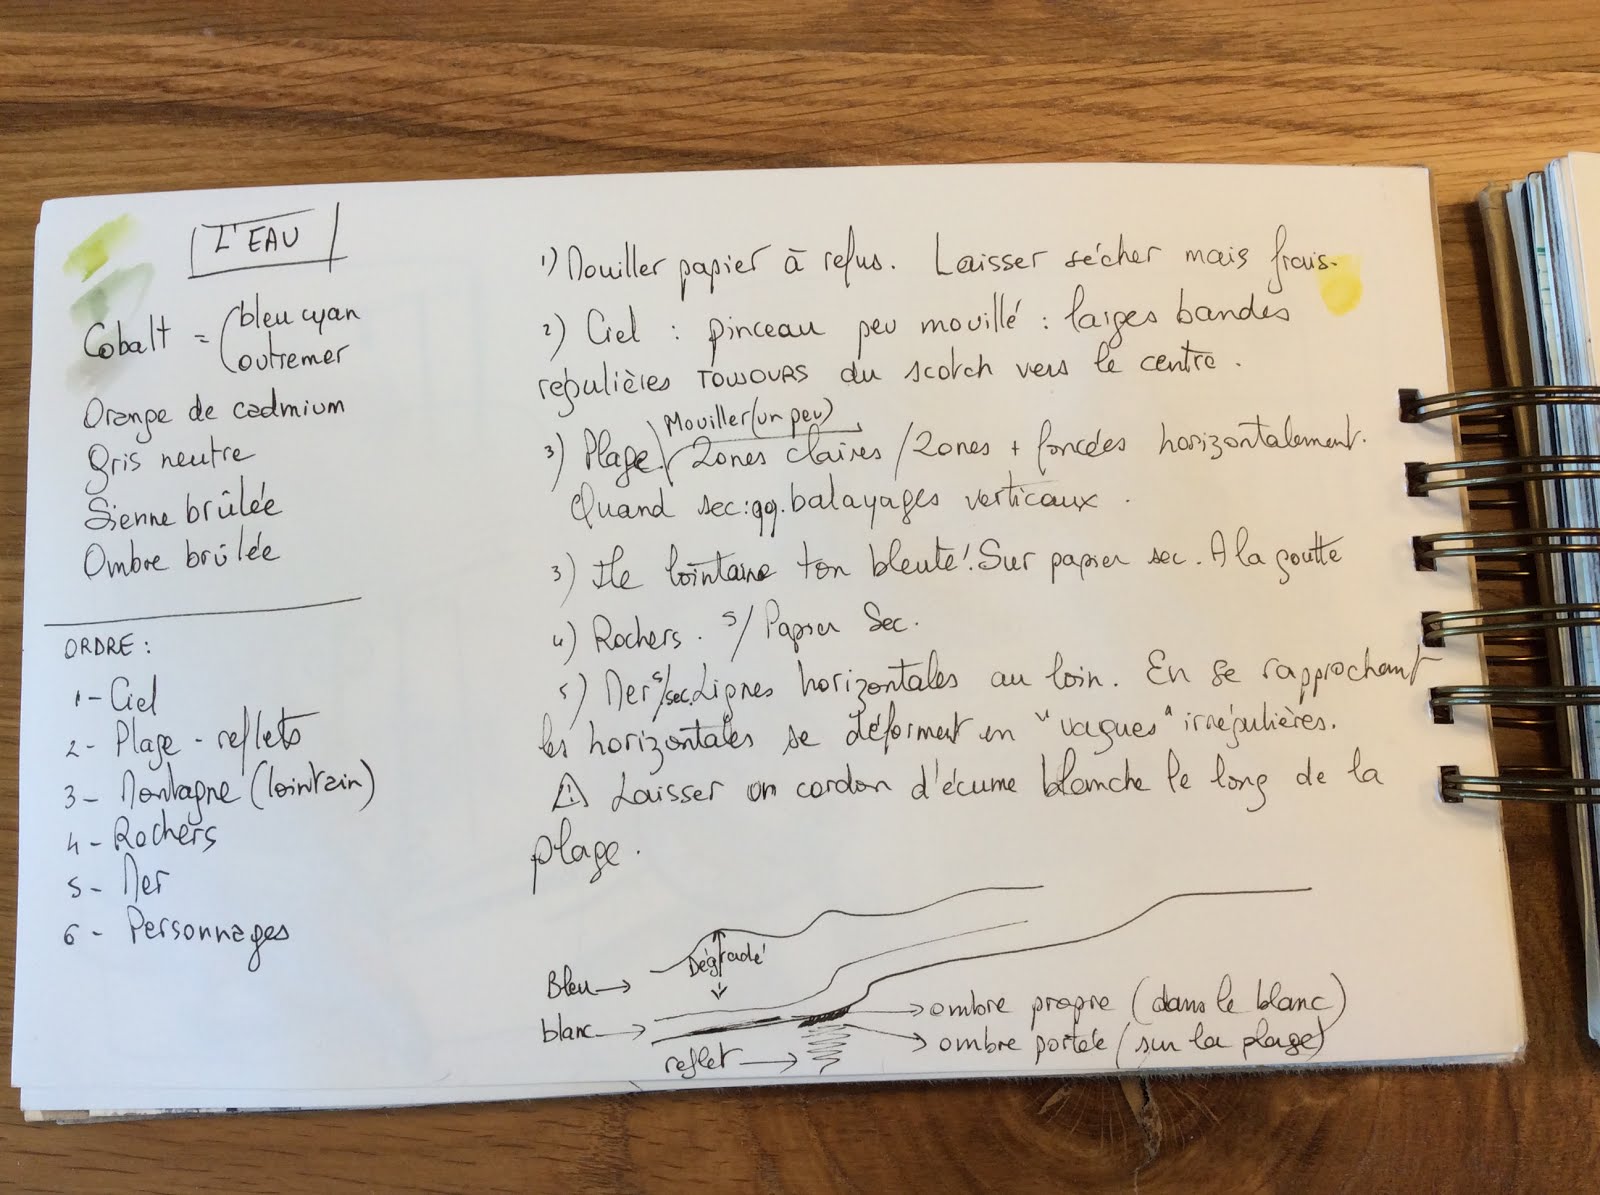 L'EAU
Cobalt = (bleu cyan
outremer
Orange de cadmium
Gris neutre
Sienne brûlée
Ombre brûlée
ORDRE :
1 - Ciel
2 - Plage - reflets
3 - Montagne (lointain)
4 - Rochers
5 - Mer
6 - Personnages
1) Mouiller papier à refus. Laisser sécher mais frais.
2) Ciel : pinceau peu mouillé : larges bandes
régulières TOUJOURS du scotch vers le centre.
Mouiller (un peu)
3) Plage Zones claires / Zones + foncées horizontalement.
Quand sec : qq. balayages verticaux.
3) Ile lointaine ton bleuté ! Sur papier sec. A la goutte
4) Rochers. s/ Papier Sec.
5) Mer s/sec. Lignes horizontales au loin. En se rapprochant
les horizontales se déforment en "vagues" irrégulières.
⚠ Laisser un cordon d'écume blanche le long de la
plage.
Dégradé
Bleu →
blanc →
reflet →
→ ombre propre (dans le blanc)
→ ombre portée (sur la plage)